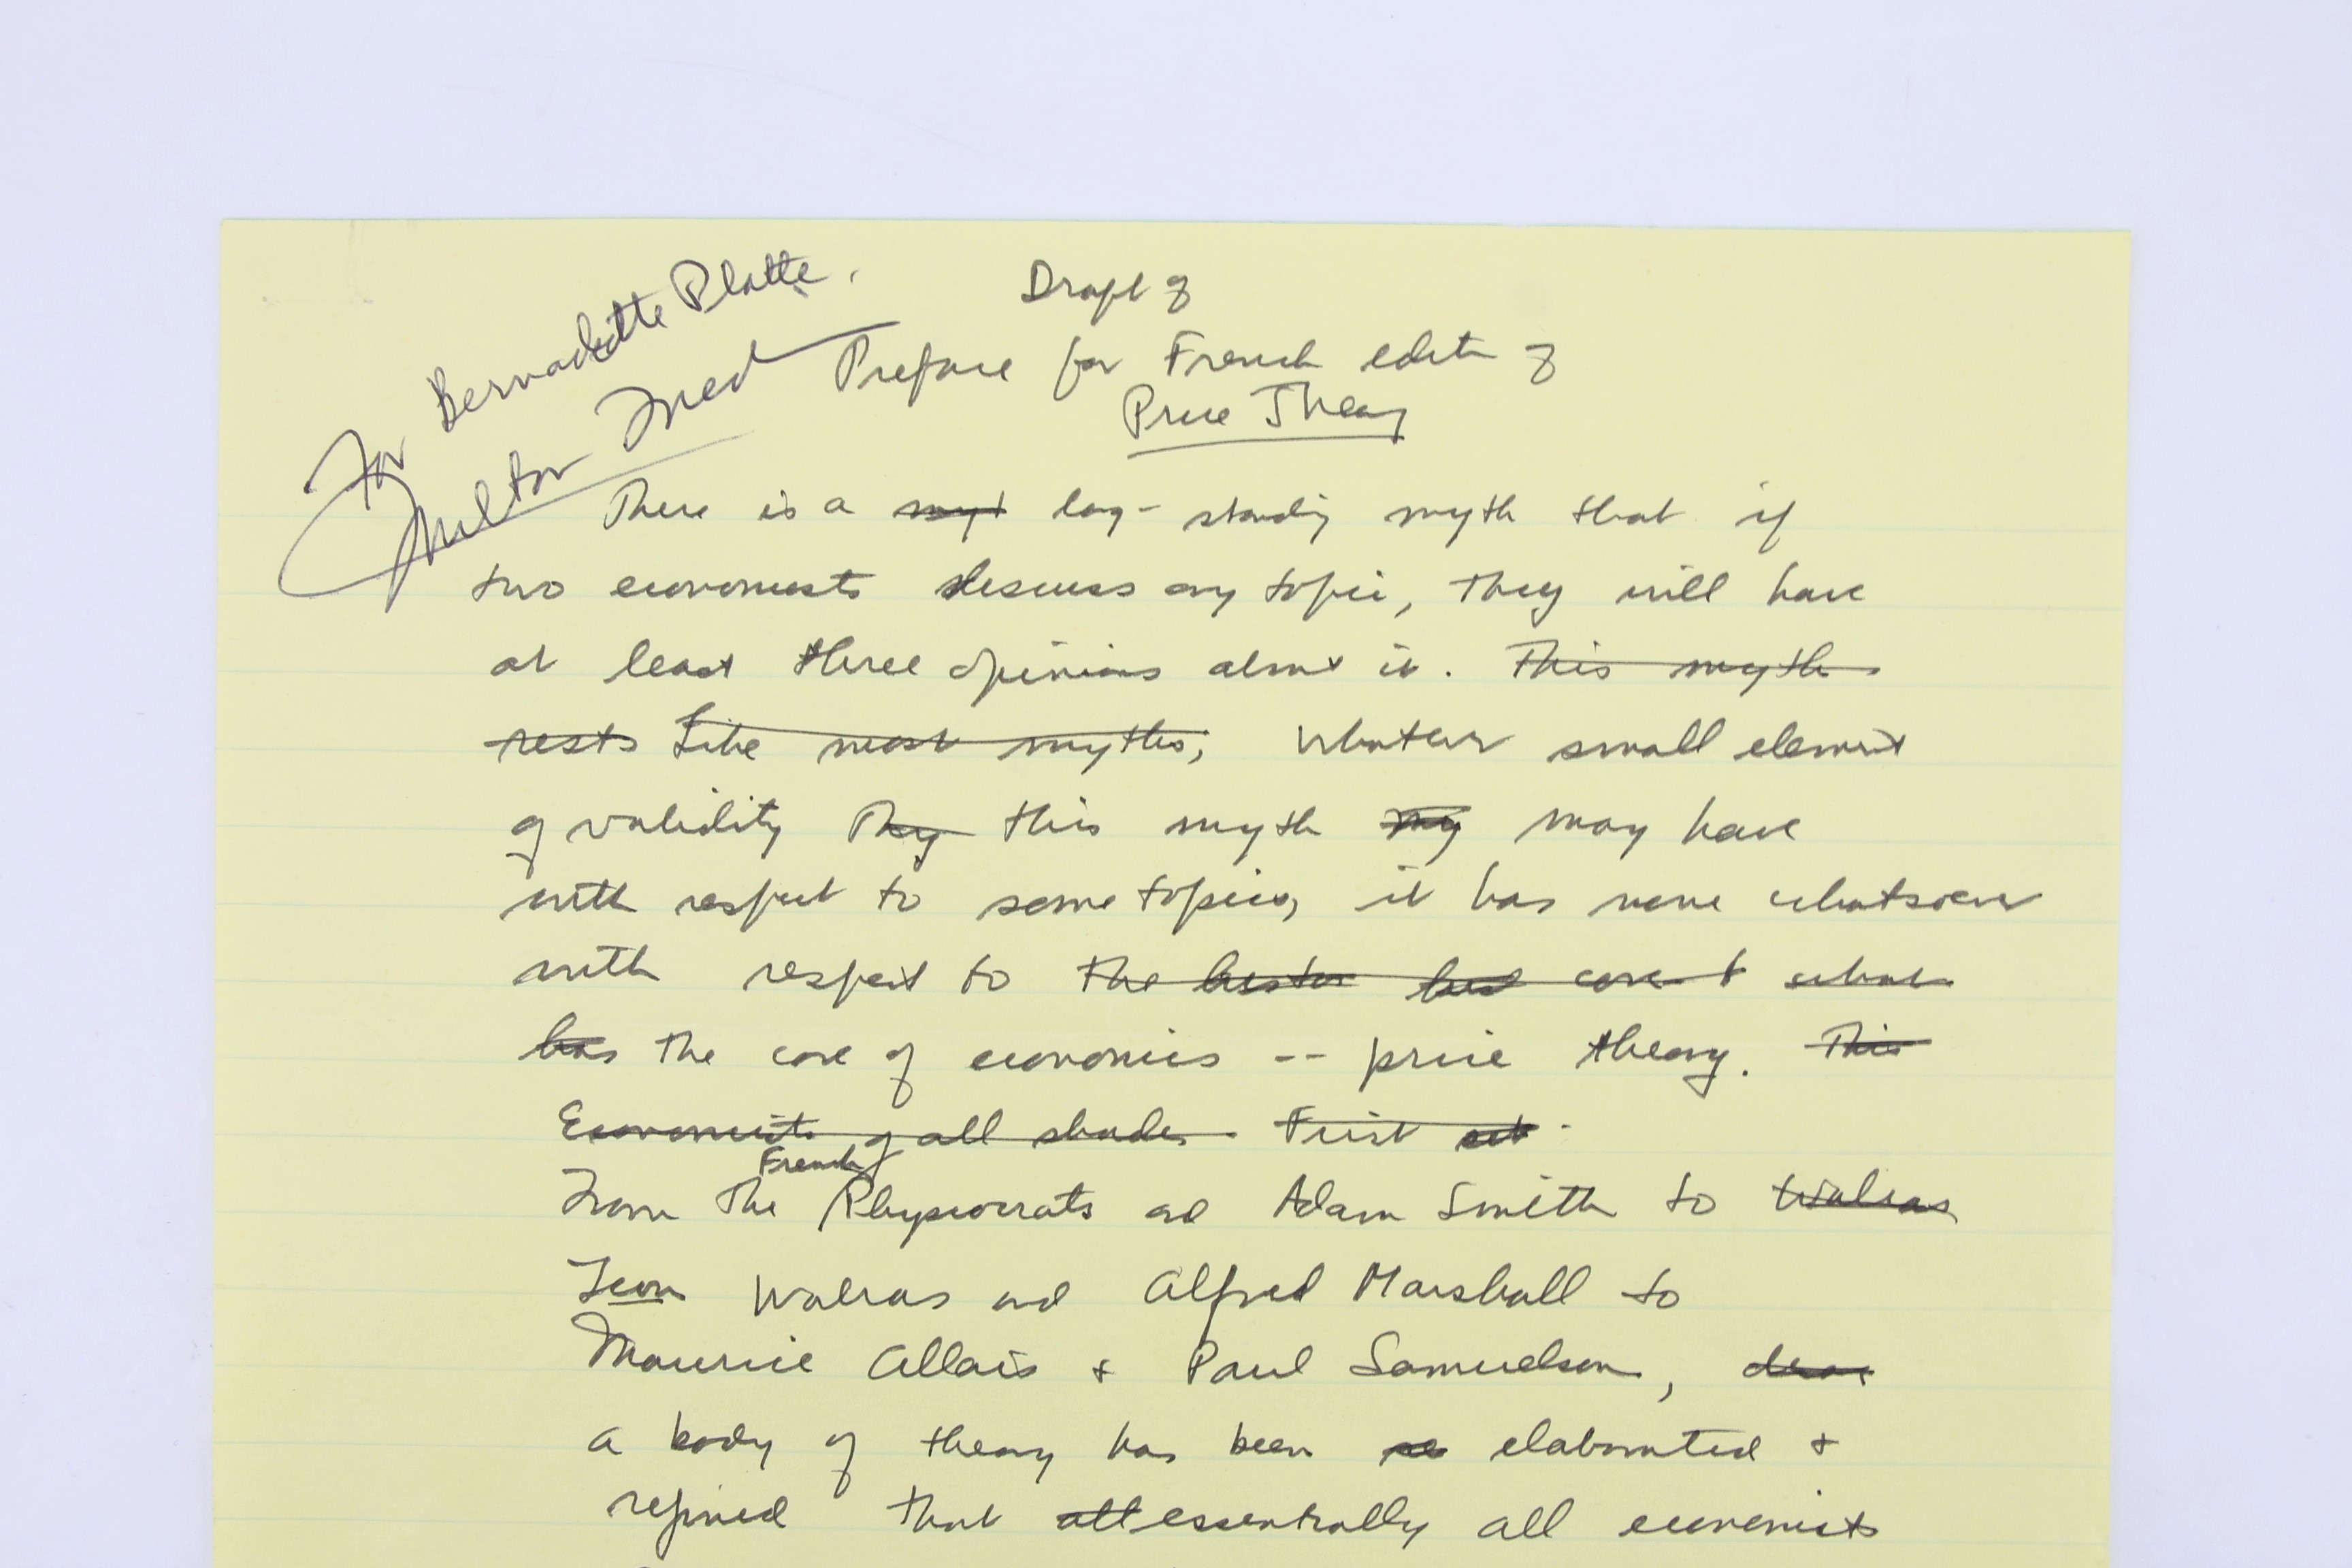 For Bernadette Platte.
Milton Fried
Draft of
Preface for French edition of
Price Theory
There is a myt long-standing myth that if
two economists discuss any topic, they will have
at least three opinions about it. This myth
rests Like most myths, whatever small element
of validity They this myth my may have
with respect to some topics, it has none whatsoever
with respect to the core
has the core of economics -- price theory. This
Economists of all shades. First
French
From the Physiocrats and Adam Smith to Walras
Leon Walras and Alfred Marshall to
Maurice Allais + Paul Samuelson,
a body of theory has been elaborated +
refined that all essentially all economists